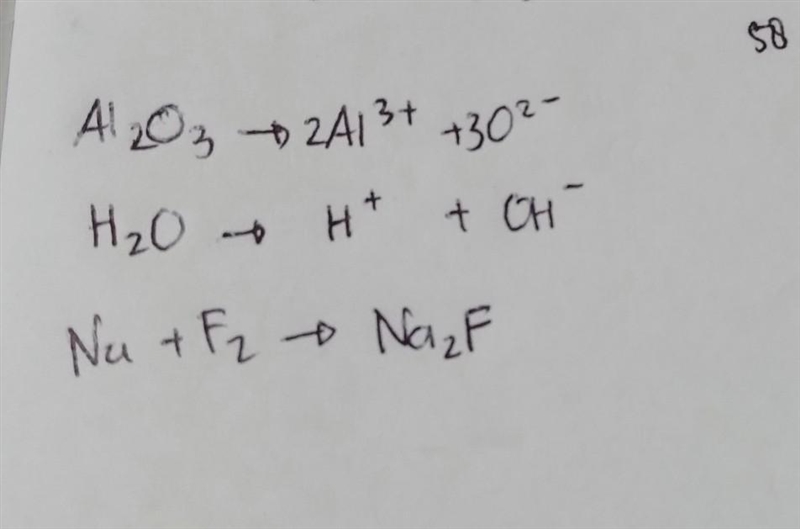 58
Al₂O₃ → 2Al³⁺ + 3O²⁻
H₂O → H⁺ + OH⁻
Na + F₂ → Na₂F